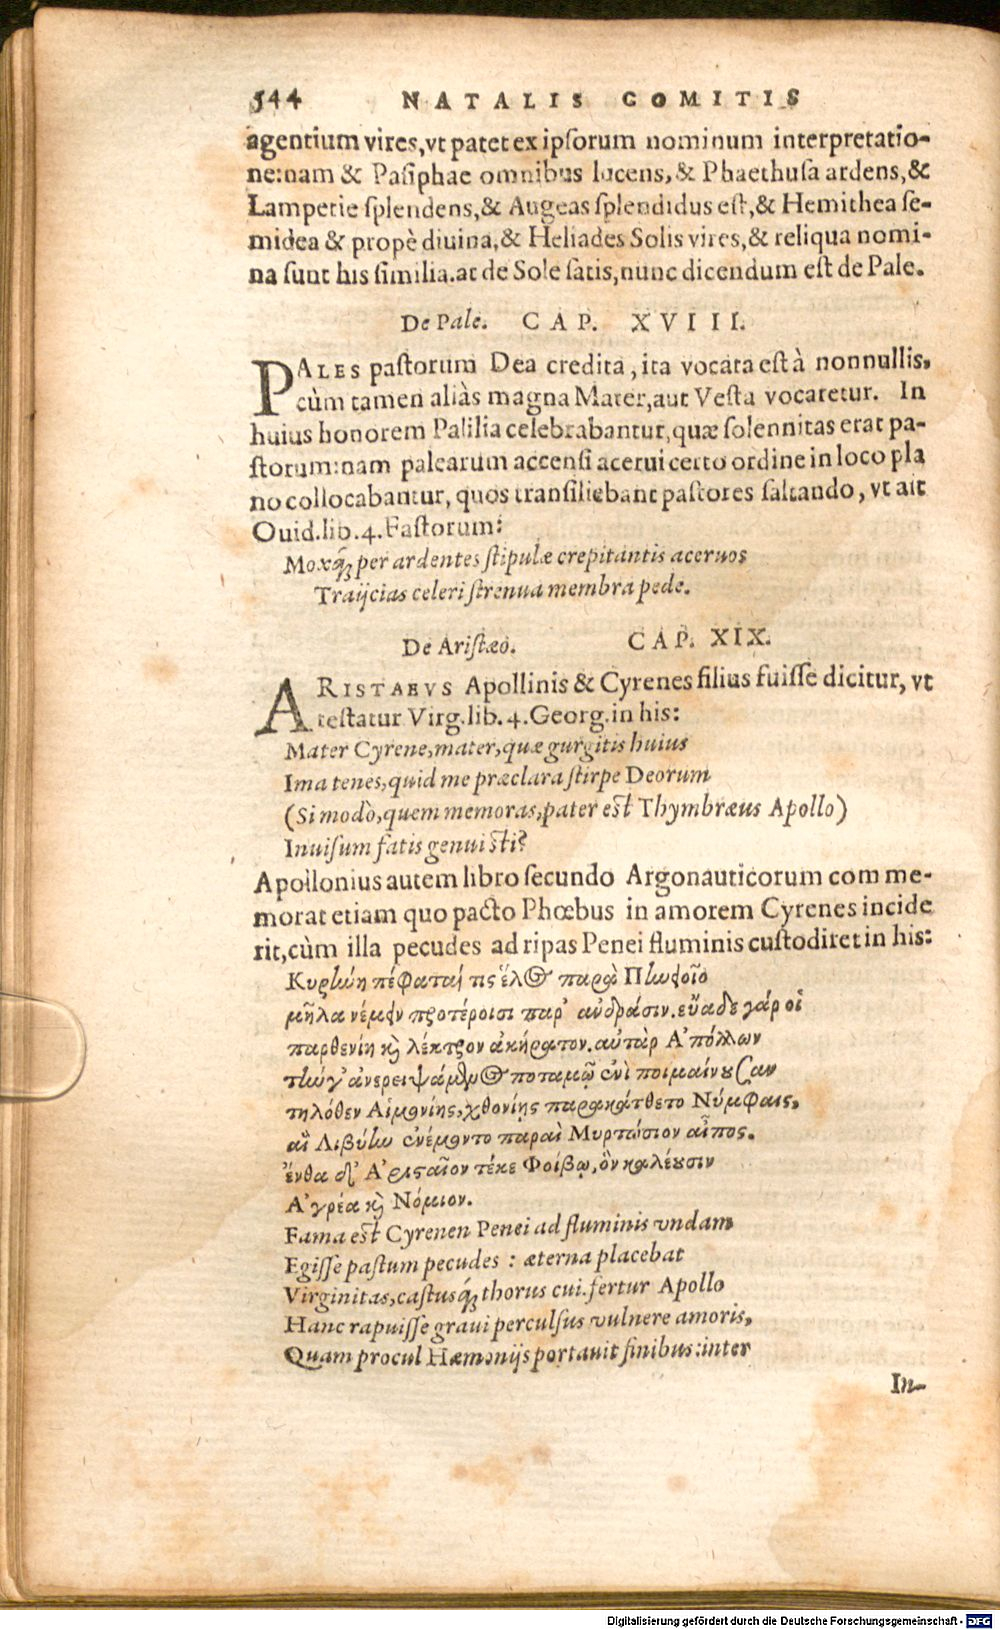 544 NATALIS COMITIS
agentium vires, vt patet ex ipsorum nominum interpretatio-
ne: nam & Pasiphae omnibus lucens, & Phaethusa ardens, &
Lampetie splendens, & Augeas splendidus est, & Hemithea se-
midea & propè diuina, & Heliades Solis vires, & reliqua nomi-
na sunt his similia. at de Sole satis, nunc dicendum est de Pale.
De Pale. CAP. XVIII.
PALES pastorum Dea credita, ita vocata est à nonnullis,
cùm tamen aliàs magna Mater, aut Vesta vocaretur. In
huius honorem Palilia celebrabantur, quæ solennitas erat pa-
storum: nam palearum accensi acerui certo ordine in loco pla
no collocabantur, quos transiliebant pastores saltando, vt ait
Ouid. lib. 4. Fastorum:
Moxq́; per ardentes stipulæ crepitantis aceruos
Traijcias celeri strenua membra pede.
De Aristæo. CAP. XIX.
ARISTAEVS Apollinis & Cyrenes filius fuisse dicitur, vt
testatur Virg. lib. 4. Georg. in his:
Mater Cyrene, mater, quæ gurgitis huius
Ima tenes, quid me præclara stirpe Deorum
(Si modò, quem memoras, pater est Thymbræus Apollo)
Inuisum fatis genuisti?
Apollonius autem libro secundo Argonauticorum comme-
morat etiam quo pacto Phœbus in amorem Cyrenes incide
rit, cùm illa pecudes ad ripas Penei fluminis custodiret in his:
Κυρήνη πέφαταί τις ἕλος παρὰ Πηνειοῖο
μῆλα νέμειν προτέροισι παρ' ἀνδράσιν. εὔαδε γάρ οἱ
παρθενίη καὶ λέκτρον ἀκήρατον. αὐτὰρ Ἀπόλλων
τήν γ' ἀνερειψάμενος ποταμῷ ἐνὶ ποιμαίνουσαν
τηλόθεν Αἱμονίης, χθονίῃς παρακάτθετο Νύμφαις,
αἳ Λιβύην ἐνέμοντο παραὶ Μυρτώσιον αἶπος.
ἔνθα δ' Ἀρισταῖον τέκε Φοίβῳ, ὃν καλέουσιν
Ἀγρέα καὶ Νόμιον.
Fama est Cyrenen Penei ad fluminis vndam
Egisse pastum pecudes: æterna placebat
Virginitas, castusq́; thorus cui. fertur Apollo
Hanc rapuisse graui perculsus vulnere amoris,
Quam procul Hæmonijs portauit finibus: inter
In-
Digitalisierung gefördert durch die Deutsche Forschungsgemeinschaft - DFG